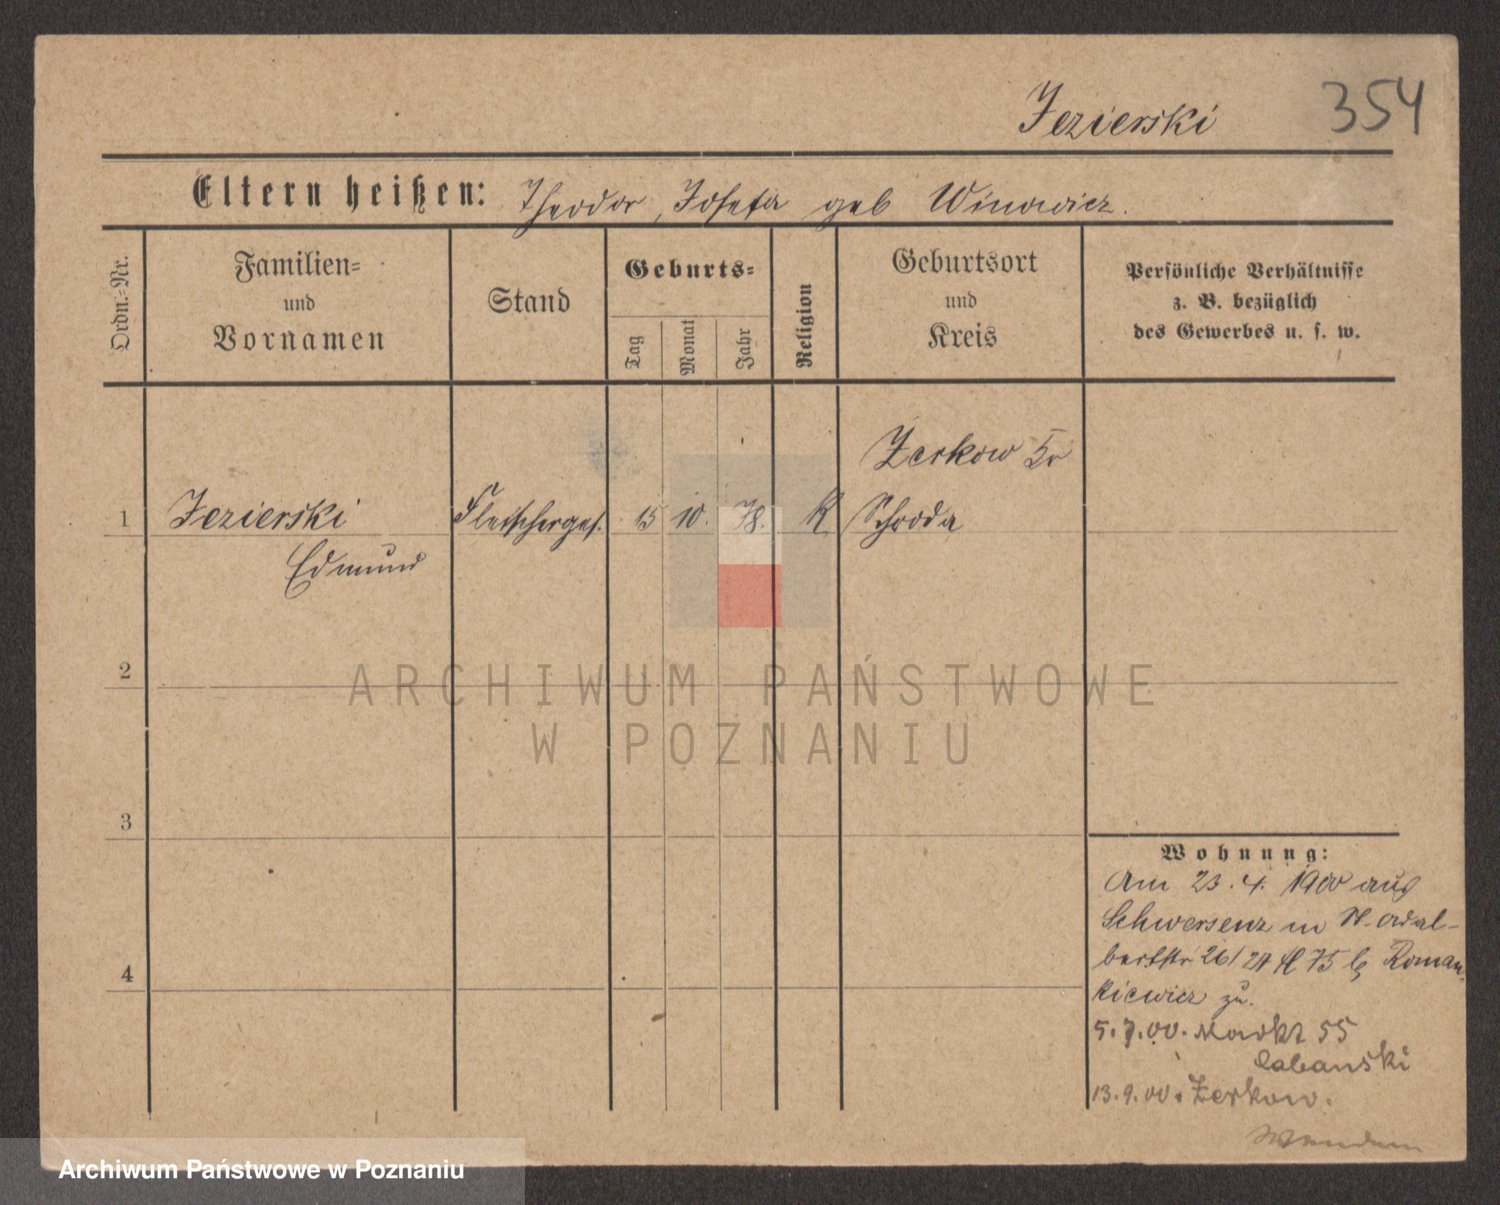 Jezierski 354
Eltern heißen: Theodor, Josefa geb Winowicz.
Ordn.=Nr.
Familien=
und
Vornamen
Stand
Geburts=
Tag
Monat
Jahr
Religion
Geburtsort
und
Kreis
Persönliche Verhältnisse
z. B. bezüglich
des Gewerbes u. s. w.
Zerkow Kr
1 Jezierski Fleischerges. 15 10. 78. K Schroda
Edmund
2
ARCHIWUM PAŃSTWOWE
W POZNANIU
3
Wohnung:
Am 23.4. 1900 aus
Schwersenz in St. Adal-
bertstr 26/27 b Roman
kiewicz zu.
4
5.7.00. Markt 55
Labanski
13.9.00. Zerkow.
Archiwum Państwowe w Poznaniu